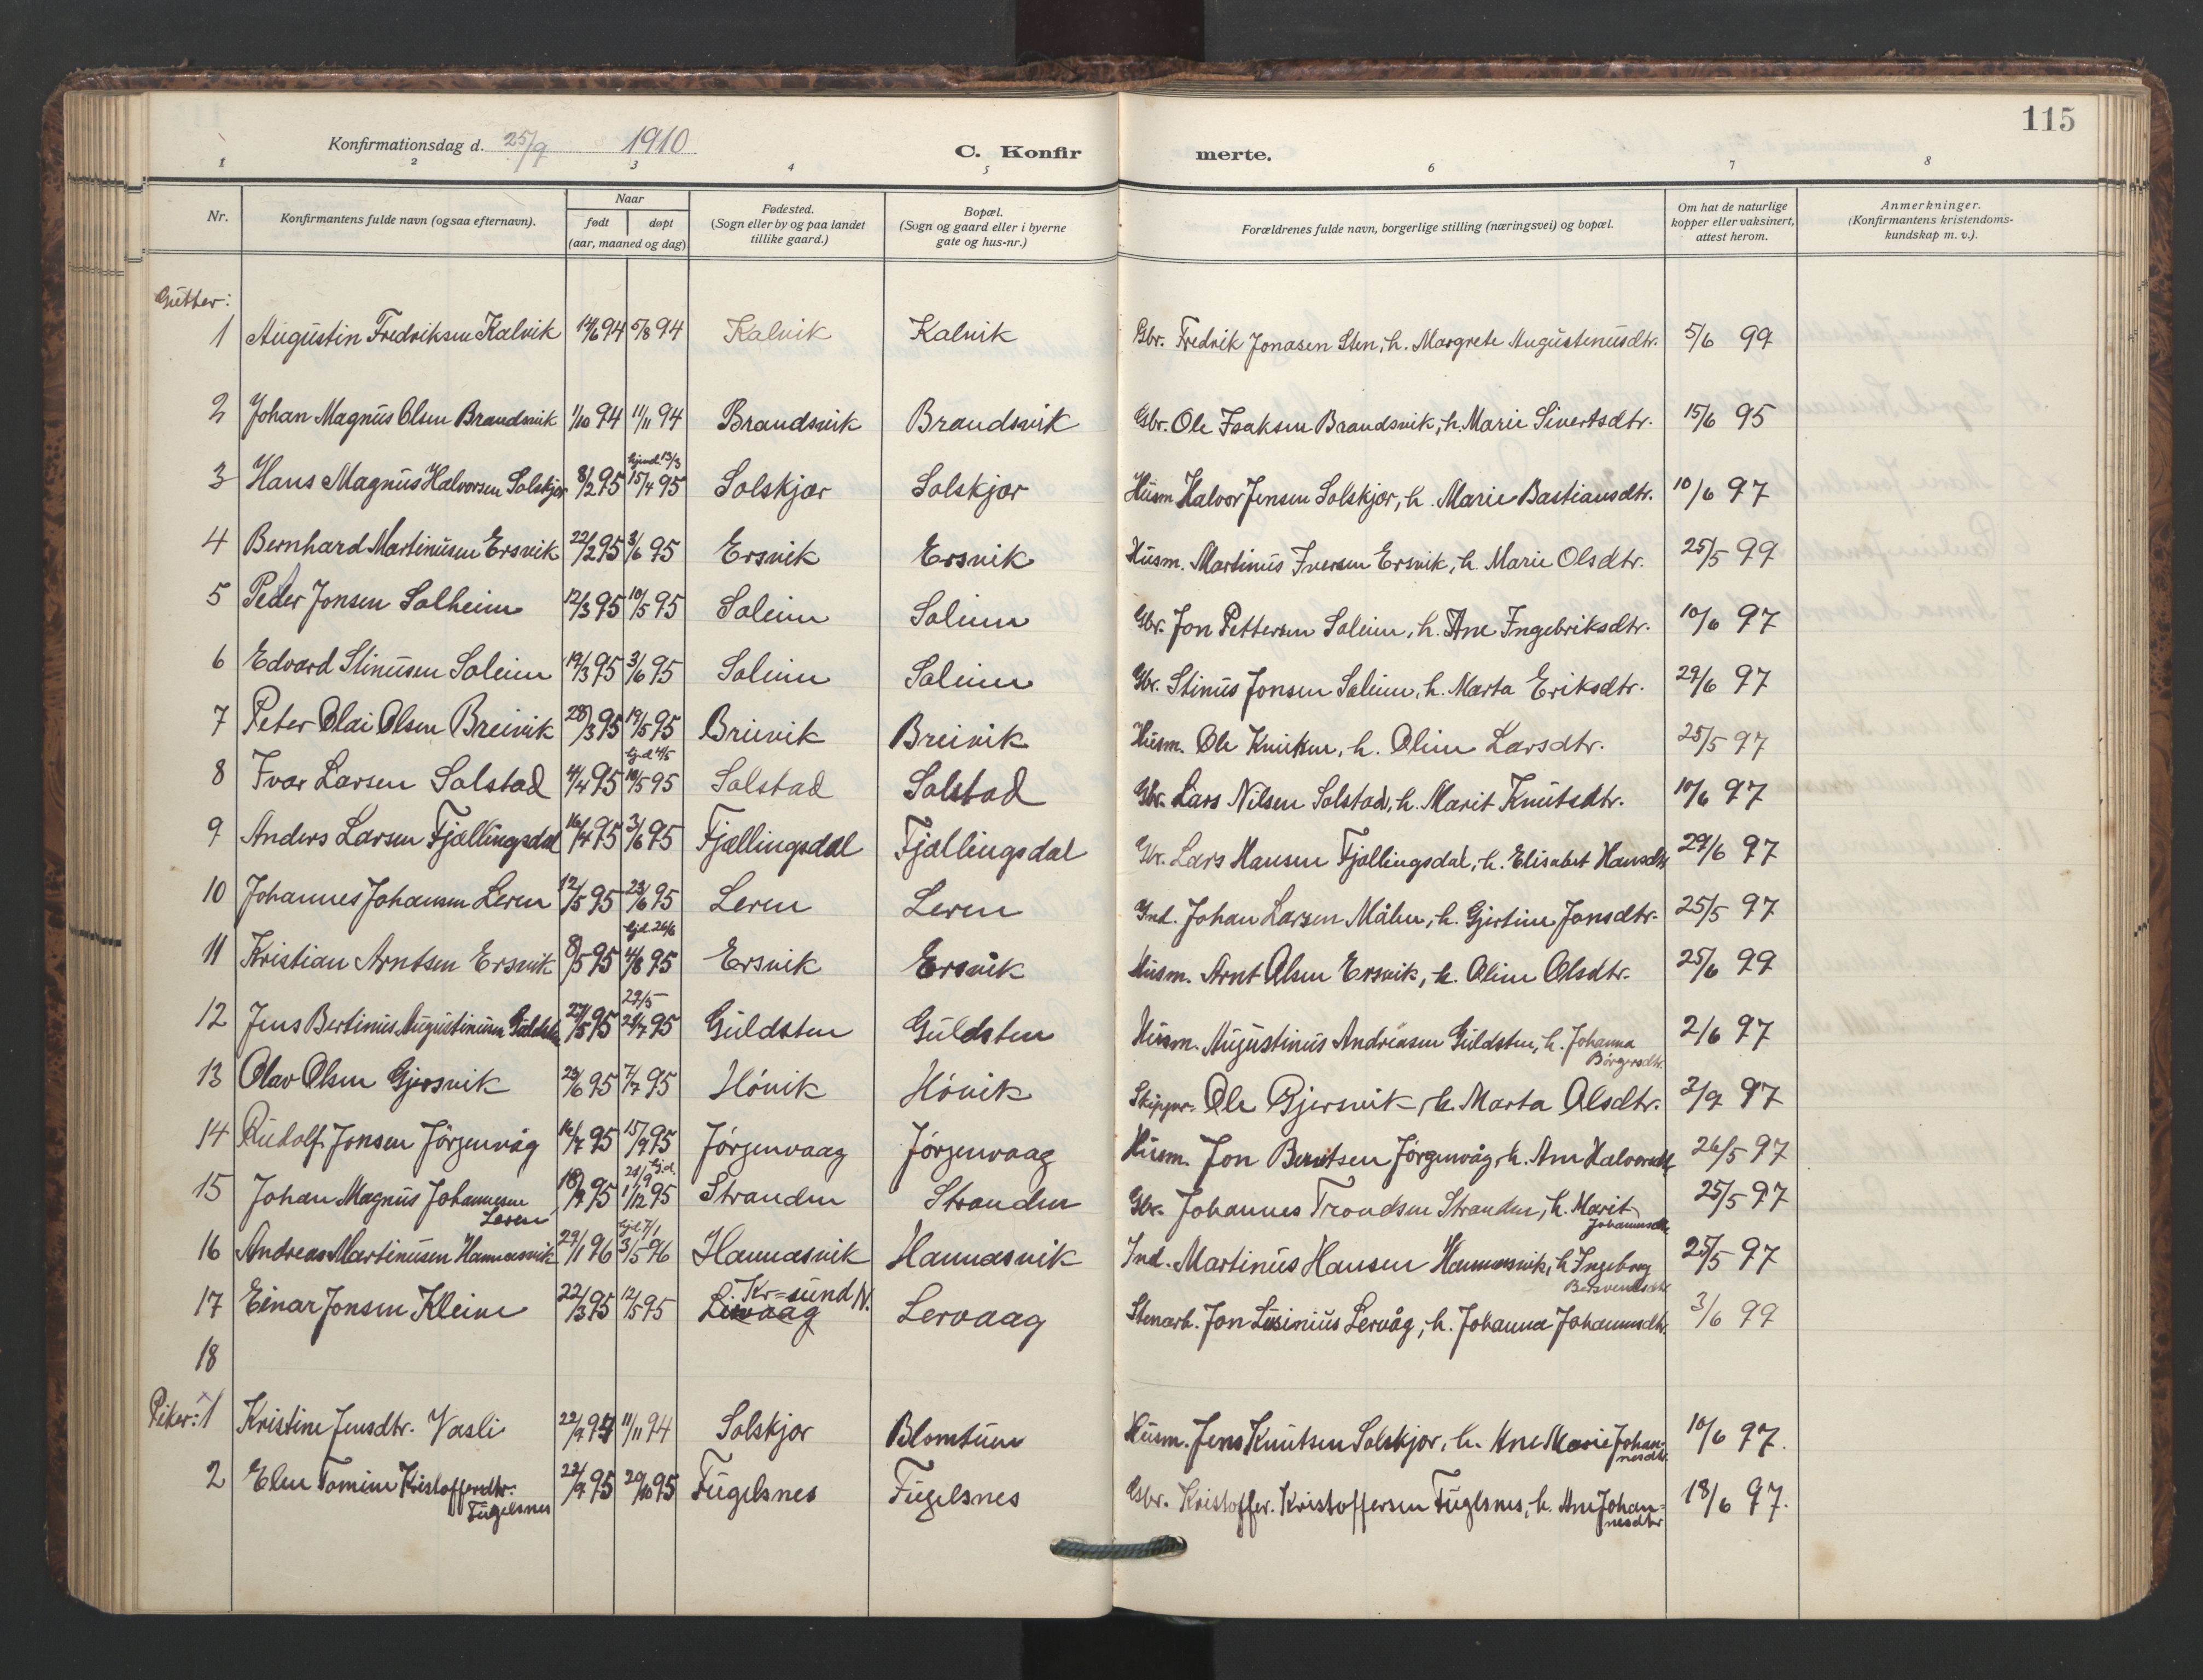 115
Konfirmationsdag d. 25/9 1910
C. Konfir merte.
1 2 3 4 5 6 7 8
Nr.
Konfirmantens fulde navn (ogsaa efternavn).
Naar
født døpt
(aar, maaned og dag)
Fødested.
(Sogn eller by og paa landet
tillike gaard.)
Bopæl.
(Sogn og gaard eller i byerne
gate og hus-nr.)
Forældrenes fulde navn, borgerlige stilling (næringsvei) og bopæl.
Om hat de naturlige
kopper eller vaksinert,
attest herom.
Anmerkninger.
(Konfirmantens kristendoms-
kundskap m. v.).
Gutter:
1 Augustin Fredriksen Kalvik 94 5/8 94 Kalvik Kalvik Gbr. Fredrik Jonasen Sten, h. Margrete Augustinusdtr. 5/6 99
2 Johan Magnus Olsen Brandsvik 1/10 94 11/11 94 Brandsvik Brandsvik Gbr. Ole Isaksen Brandsvik, h. Marie Sivertsdtr. 15/6 95
hjemd. 13/3
3 Hans Magnus Halvorsen Solskjør 8/2 95 15/4 95 Solskjør Solskjør Husm Halvor Jensen Solskjør, h. Marie Bastiansdtr. 10/6 97
4 Bernhard Martinusen Ersvik 22/2 95 3/6 95 Ersvik Ersvik Husm. Martinus Iversen Ersvik, h. Marie Olsdtr. 25/5 99
5 Peder Jonsen Solheim 12/3 95 10/5 95 Soleim Soleim Gbr. Jon Pettersen Soleim, h. Ane Ingebriksdtr. 10/6 97
6 Edvard Stinusen Soleim 19/3 95 3/6 95 Soleim Soleim Gbr. Stinus Jonsen Soleim, h. Marta Eriksdtr. 29/6 97
7 Peter Olai Olsen Breivik 28/3 95 19/5 95 Breivik Breivik Husm. Ole Knutsen, h. Oline Larsdtr. 25/5 97
8 Ivar Larsen Solstad 4/4 95 10/5 95 Solstad Solstad Gbr. Lars Nilsen Solstad, h. Marit Knutsdtr. 10/6 97
9 Anders Larsen Fjællingsdal 16/4 95 3/6 95 Fjællingsdal Fjællingsdal Gbr. Lars Hansen Fjællingsdal, h. Elisabet Hansdtr 29/6 97
10 Johannes Johansen Leren 12/5 95 23/6 95 Leren Leren Ind. Johan Larsen Målen, h. Gjertine Jonsdtr. 25/5 97
hjd. 26/6
11 Kristian Arntsen Ersvik 8/5 95 4/8 95 Ersvik Ersvik Husm. Arnt Olsen Ersvik, h. Oline Olsdtr. 25/6 99
29/5
12 Jens Bertinus Augustinusen Guldsten 27/5 95 21/7 95 Guldsten Guldsten Husm. Augustinus Andreasen Guldsten, h. Johanna 2/6 97
Börgersdtr.
13 Olav Olsen Gjersvik 23/6 95 7/7 95 Hóvik Hóvik Skipper. Ole Gjersvik, h. Marta Olsdtr. 2/9 97
14 Rudolf Jonsen Jörgenvåg 16/7 95 15/9 95 Jórgenvaag Jórgenvaag Husm. Jon Berntsen Jörgenvåg, h. Ane Halvorsdtr 26/5 97
21/9 hjd.
15 Johan Magnus Johannesen 18/9 95 1/12 95 Stranden Stranden Gbr. Johannes Trondsen Stranden, h. Marit 25/5 97
Leren Johannesdtr
hjd. 7/1
16 Andreas Martinusen Hannasvik 29/1 96 3/5 96 Hannasvik Hannasvik Ind. Martinus Hansen Hannasvik, h. Ingeborg 25/5 97
Kr=sund N.
17 Einar Jonsen Kleive 22/3 95 12/5 95 Lervaag Lervaag Stenarb. Jon Lusinius Lervåg, h. Johanna Johannesdtr. 3/6 99
18
Piker: 1 Kristine Jensdtr. Vasli 22/9 94 11/11 94 Solskjør Blomtun Husm. Jens Knutsen Solskjør, h. Ane Marie Johan- 10/6 97.
nesdtr.
2 Elen Tomine Kristoffersdtr. 22/9 95 20/10 95 Fugelsnes Fugelsnes Gbr. Kristoffer Kristoffersen Fuglsnes, h. Ane Johan= 18/6 97.
Fugelsnes nesdtr